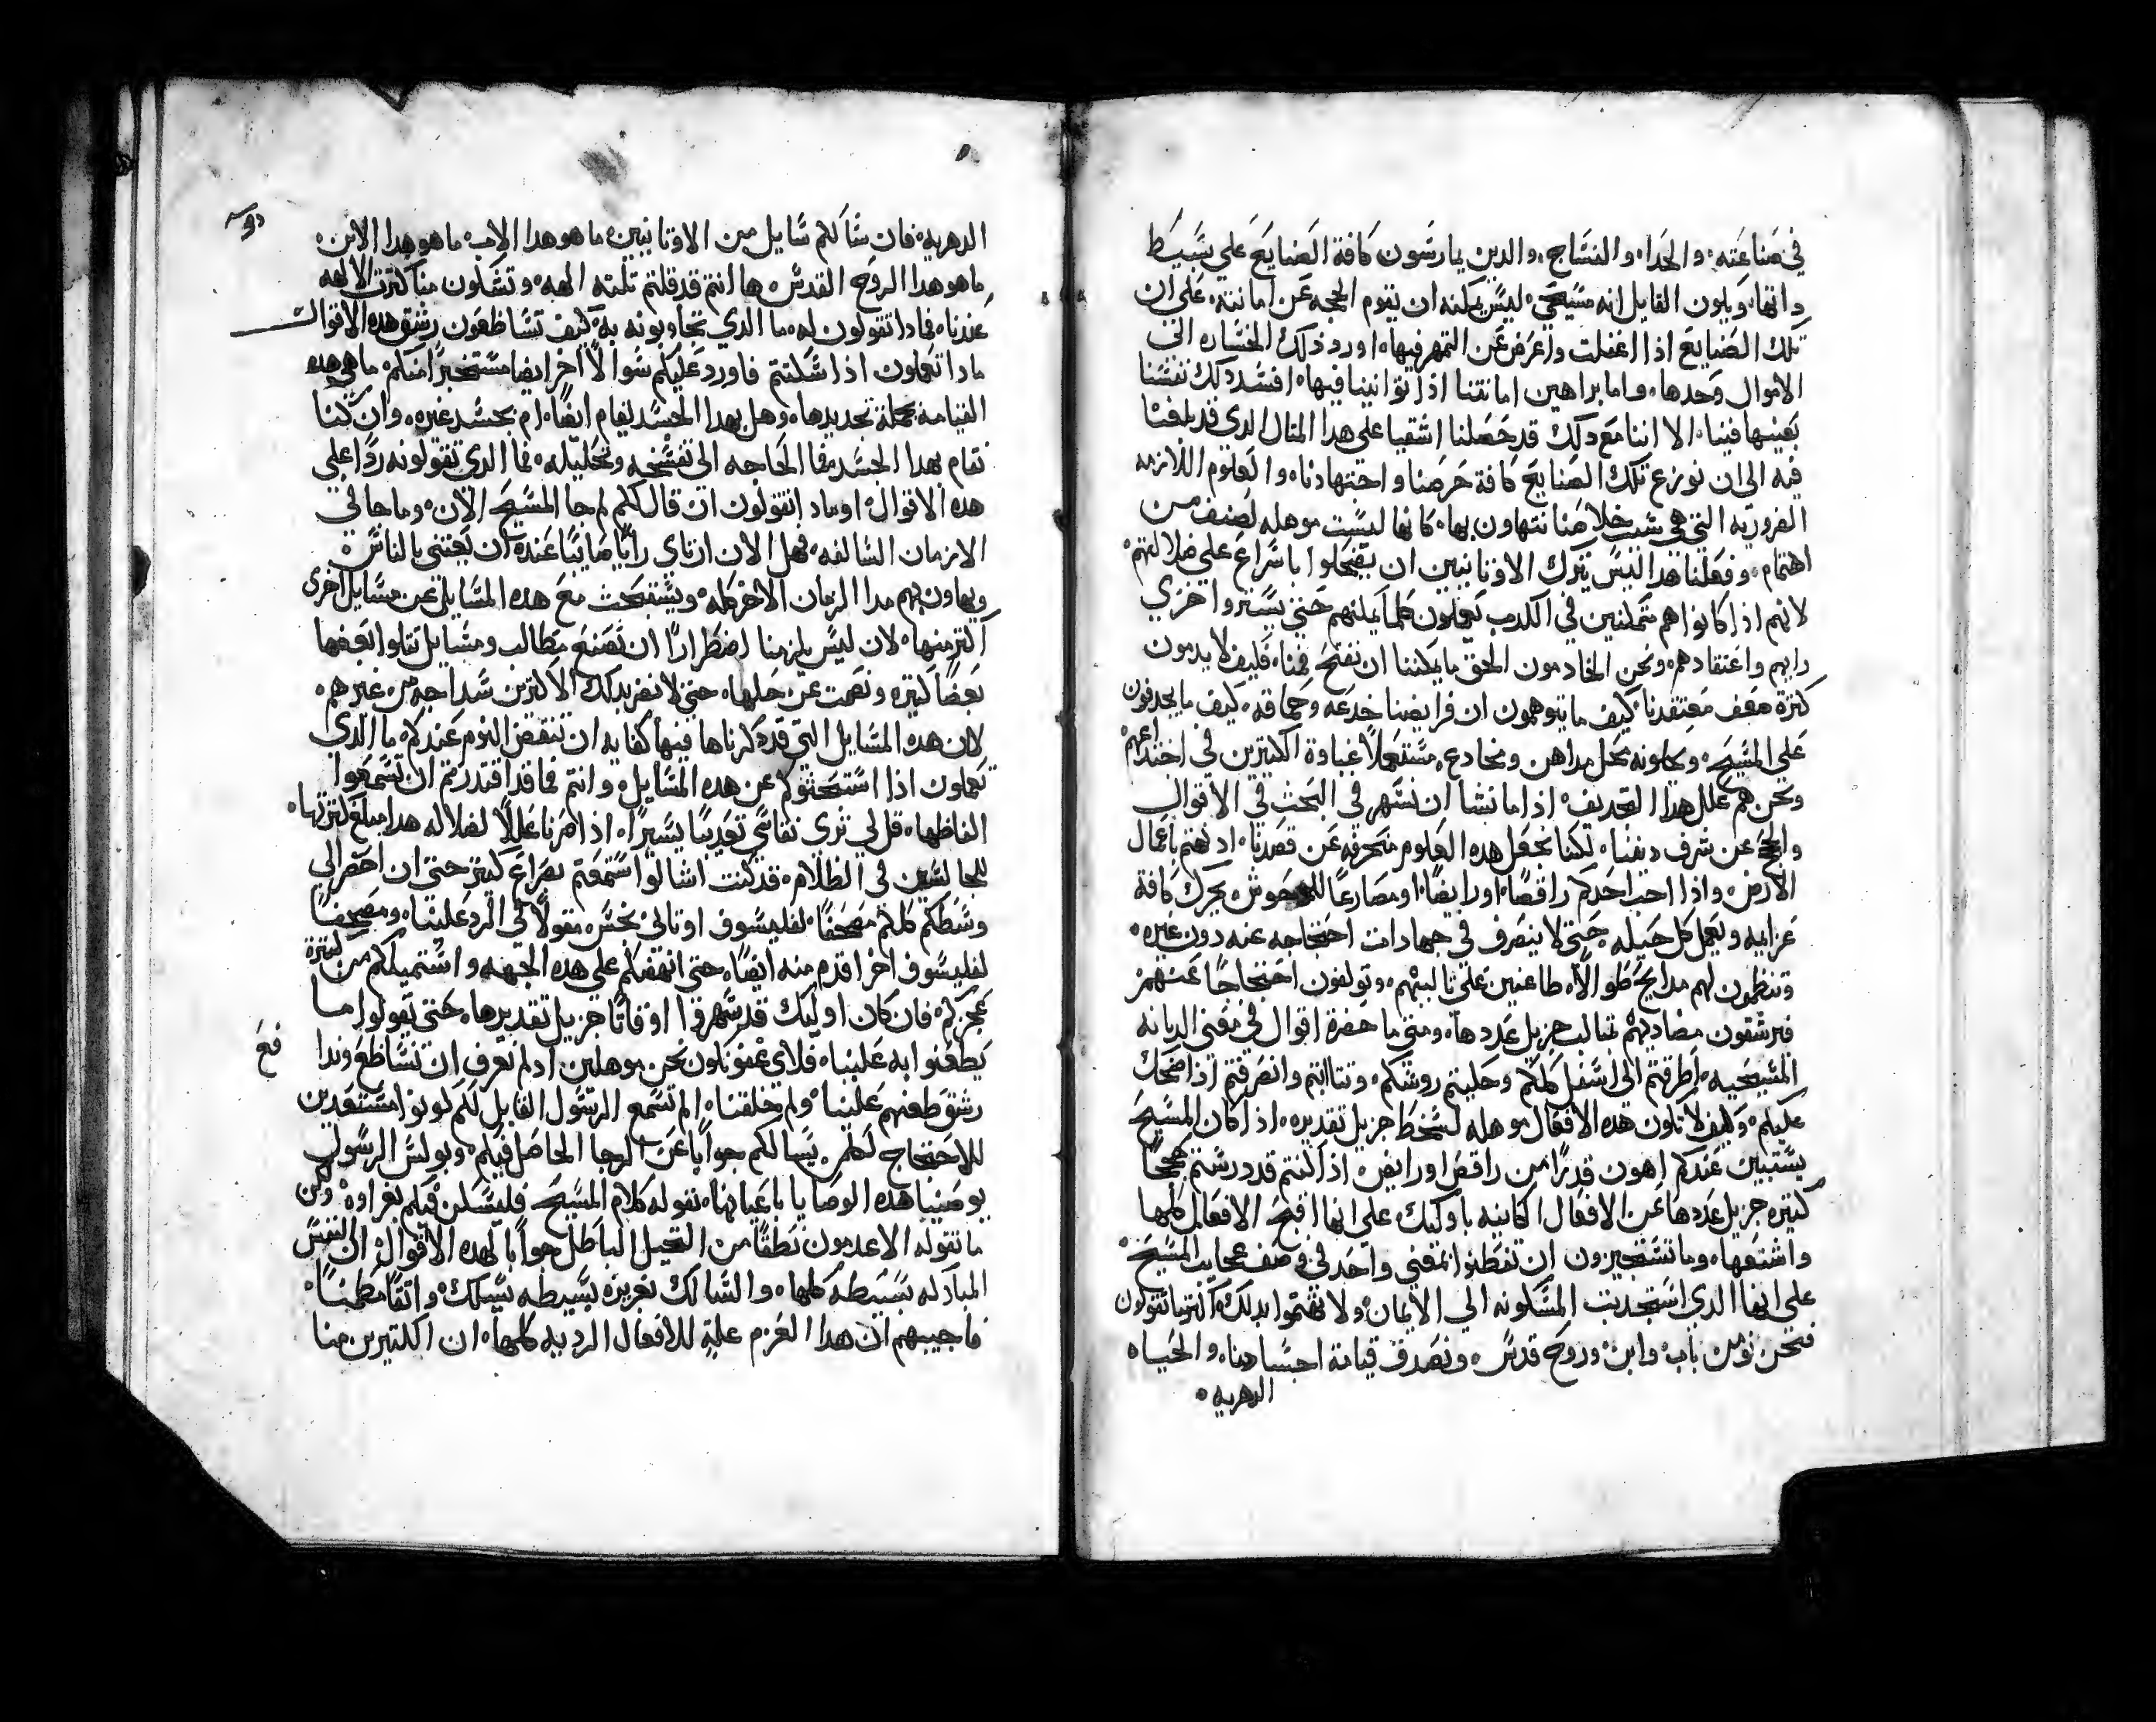 في صناعته، والحداد والنساج، والدين يمارسون كافة الصنايع علي بسيط
داتها، ويكون القايل انه مسيحي، ليس يمكنه ان يقوم الحجه عن امانته، علي ان
تلك الصنايع اذا اغفلت واعرض عن التمهر فيها، اورد ذلك الخساره الي
الاموال وحدها، واما براهين امانتنا اذا توانينا فيها، افسد دلك نفسنا
بعينها فينا، الا اننا مع دلك قد حصلنا اشقيا علي هدا المثال الدي قد بلغنا
فيه الي ان نوزع تلك الصنايع كافة حرصنا واجتهادنا، والعلوم اللازمه
الضروريه التي هي سبب خلاصنا نتهاون بها، كانها ليست موهله لصنف من
اهتمام، وفعلنا هدا ليس يترك الاوثانيين ان يضحكوا باسراع علي ضلالتهم،
لانهم اذا كانوا هم متمكنين في الكدب يعملون كلما يمكنهم حتي يستروا خزي
رايهم واعتقادهم، ونحن الخادمون الحق ما يمكننا ان نفتح فمنا، فكيف لا يدمون
كثرة ضعف معتقدنا، كيف ما يتوهمون ان فرايضنا خدعه وحماقه، كيف ما يجدفون
علي المسيح، ويجلونه محل مداهن ومخادع، مستعملاً غباوة الكثيرين في اختداعهم
ونحن هم علل هدا التجديف، اذ اما نشا ان نسهر في البحث في الاقوال
والحجج عن شرف ديننا، لكنا نجعل هده العلوم منحرفه عن قصدنا، اد نهتم باعمال
الارض، واذا احب احدكم راقصاً، اورايضاً، اومصارعاً للوحوش يحرك كافة
عزايمه ويعمل كل حيله، حتي لا ينصرف في جهادات احتجاجه عنه دون غيره،
وتنظمون لهم مدايح طوالا، طاعنين علي ثالبيهم، وتولفون احتجاجاً عنهم
فترشقون مضاديهم بمثالب جزيل عددها، ومتي ما حضرة اقوال في معني الديانه
المسيحيه، اطرقتم الي اسفل كلكم وحكيتم روسكم، وتثاابتم وانصرفتم اذا ضحك
عليكم، وكيف لا تكون هده الافعال موهله لسخط جزيل تقديره، اذا كان المسيح
يستبين عندكم اهون قدرًا من راقص اورايض، اذ انتم قد درستم حججاً
كثيره جزيل عددها عن الافعال الكاينه باوليك، علي انها اقبح الافعال كلها
واشنعها، وما تستجيزون ان تفطنوا بمعني واحد في وصف عجايب المسيح،
علي انها الدي استجدبت المسكونه الي الايمان، ولا تهتموا بدلك، اكثر ما تقولون
فنحن نومن باب، وابن، وروح قدس، ونصدق قيامة اجسادنا، والحياه
الدهريه،
الدهريه، فان سالكم سايل من الاوثانيين، ما هو هدا الاب، ما هو هدا الابن،
ما هو هدا الروح القدس، ها انتم قد قلتم تلته الهه، وتشكون منا كثرت الالهه
عندنا، فمادا تقولون له، ما الدي تجاوبونه به، كيف تساطعون رشق هده الاقوال
مادا تعملون اذا سكتتم فاورد عليكم سوالاً اخر ايضا مستخبراً منكم، ما هي هده
القيامه بجملة تحديدها، وهل بهدا الجسد نقام ايضاً، ام بجسد غيره، وان كنا
نقام بهدا الجسد، فما الحاجه الي تفسخه وتحليله، فما الدي تقولونه ردًا علي
هده الاقوال، اومادا تقولون ان قال لكم لم جا المسيح الان، وما جا في
الازمان السالفه، فهل الان ارتاي رايًا صايبًا عنده ان يعتني بالناس،
ويهاون بهم مدا الزمان الاخر كله، ويستبحث مع هده المسايل عن مسايل اخري
اكثر منها، لان ليس يلزمنا اضطرارًا ان نصنع مطالب ومسايل تتلوا بعضها
بعضًا كثيره ونصمت عن حلها، حتي لا نضر بدلك الاكثرين سداجه من غيرهم،
لان هده المسايل التي قد دكرناها فيها كفايه ان تنفض النوم عندكم، ما الدي
تعملون اذا استبحثوكم عن هده المسايل، وانتم فما قد اقتدرتم ان تسمعوا
الفاظها، قل لي تري نقاسي تعديبًا يسيرًا، اذ اصرنا عللاً لضلاله هدا مبلغ كثرتها،
للجالسين في الظلام، قد كنت اشا لوا ستمعتم بصراع كثير حتي ان احضر الي
وسطكم كلكم مصحفًا لفيلسوف اوثاني نجس، مقولاً في الرد علينا، ومصحفًا
لفيلسوف اخر اقدم منه ايضًا، حتي انهضكم علي هده الجهه، واستميلكم من كثرة
عجزكم، فان كان اوليك قد سهروا اوقاتًا جزيل تقديرها، حتي يقولوا ما
يطعنوا به علينا، فلاي عفو نكون نحن موهلين، اد لم نعرف ان نساطع وندا
رشق طعنهم علينا، ولم خلقنا، الم تسمع الرسول القايل لكم كونوا مستعدين
للاحتجاج لكلمن يسالكم جوابًا عن الرجا الحاصل فيكم، وبولس الرسول
يوصينا هده الوصايا باعيانها، بقوله كلام المسيح فليسكن فيكم بغزاره، ولكن
ما تقوله الاعدمون نطقًا من التحيل الباطل جوابًا لهده الاقوال، ان النفس
المباركه بسيطه كلها، والسالك بغريزه بسيطه يسلك واثقًا مطمئنًا،
فاجيبهم ان هدا العزم علة للافعال الرديه كلها، ان الكثيرين منا